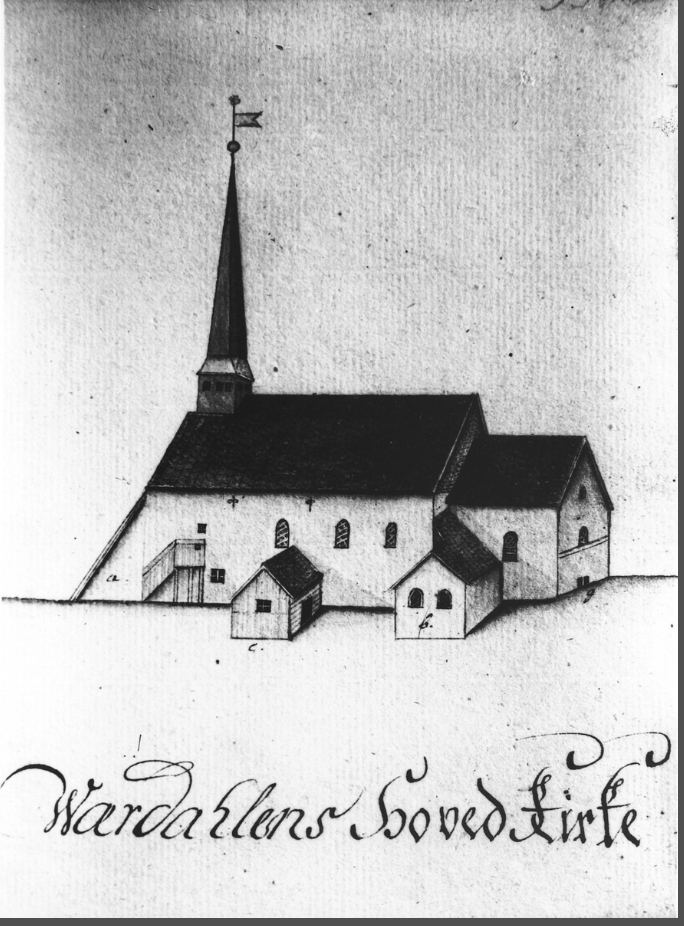 a.
b.
c.
g
Wærdahlens Hoved Kirke